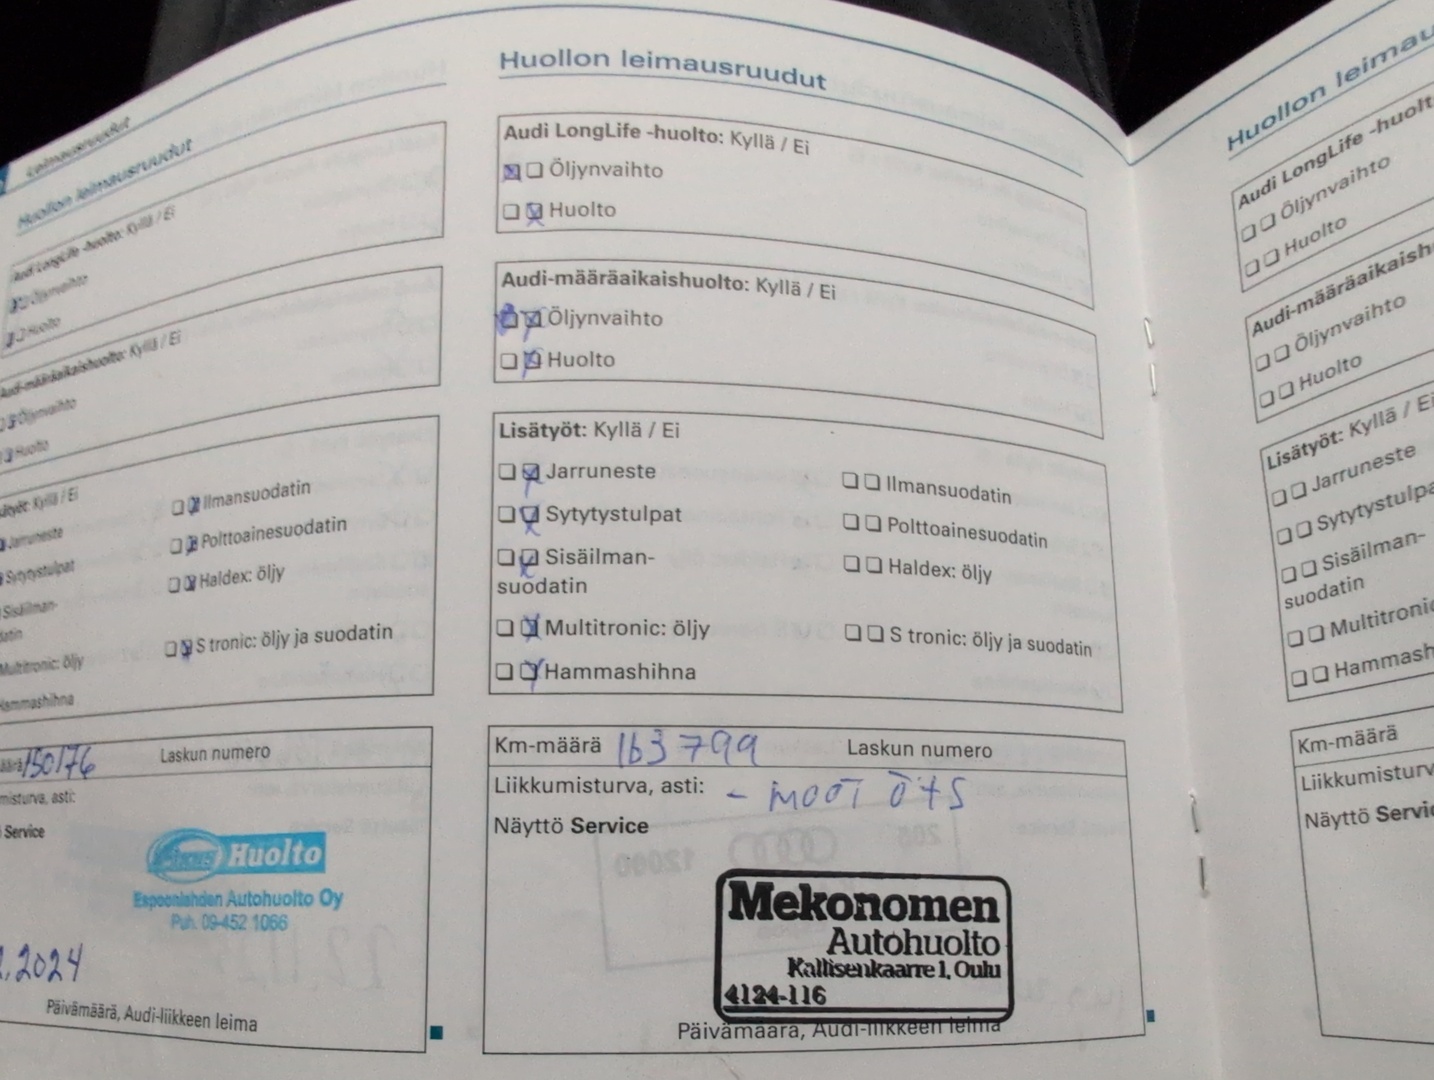 Leimausruudut
Huollon leimausruudut
Audi LongLife -huolto: Kyllä / Ei
Öljynvaihto
Huolto
Audi-määräaikaishuolto: Kyllä / Ei
Öljynvaihto
Huolto
Kyllä / Ei
Jarruneste
Ilmansuodatin
Sytytystulpat
Polttoainesuodatin
Sisäilman-
Haldex: öljy
Multitronic: öljy
S tronic: öljy ja suodatin
Hammashihna
150176 Laskun numero
asti:
Service
Huolto
Espoonlahden Autohuolto Oy
Puh. 09-452 1066
.2024
Päivämäärä, Audi-liikkeen leima
Huollon leimausruudut
Audi LongLife -huolto: Kyllä / Ei
Öljynvaihto
Huolto
Audi-määräaikaishuolto: Kyllä / Ei
Öljynvaihto
Huolto
Lisätyöt: Kyllä / Ei
Jarruneste
Ilmansuodatin
Sytytystulpat
Polttoainesuodatin
Sisäilman-
suodatin
Haldex: öljy
Multitronic: öljy
S tronic: öljy ja suodatin
Hammashihna
Km-määrä 163799 Laskun numero
Liikkumisturva, asti:
Näyttö Service
Mekonomen
Autohuolto
Kallisenkaarre 1, Oulu
4124-116
Päivämäärä, Audi-liikkeen leima
Huollon leimau
Audi LongLife -huolt
Öljynvaihto
Huolto
Audi-määräaikaish
Öljynvaihto
Huolto
Lisätyöt: Kyllä / Ei
Jarruneste
Sytytystulpa
Sisäilman-
suodatin
Multitronic
Hammash
Km-määrä
Liikkumisturv
Näyttö Servic